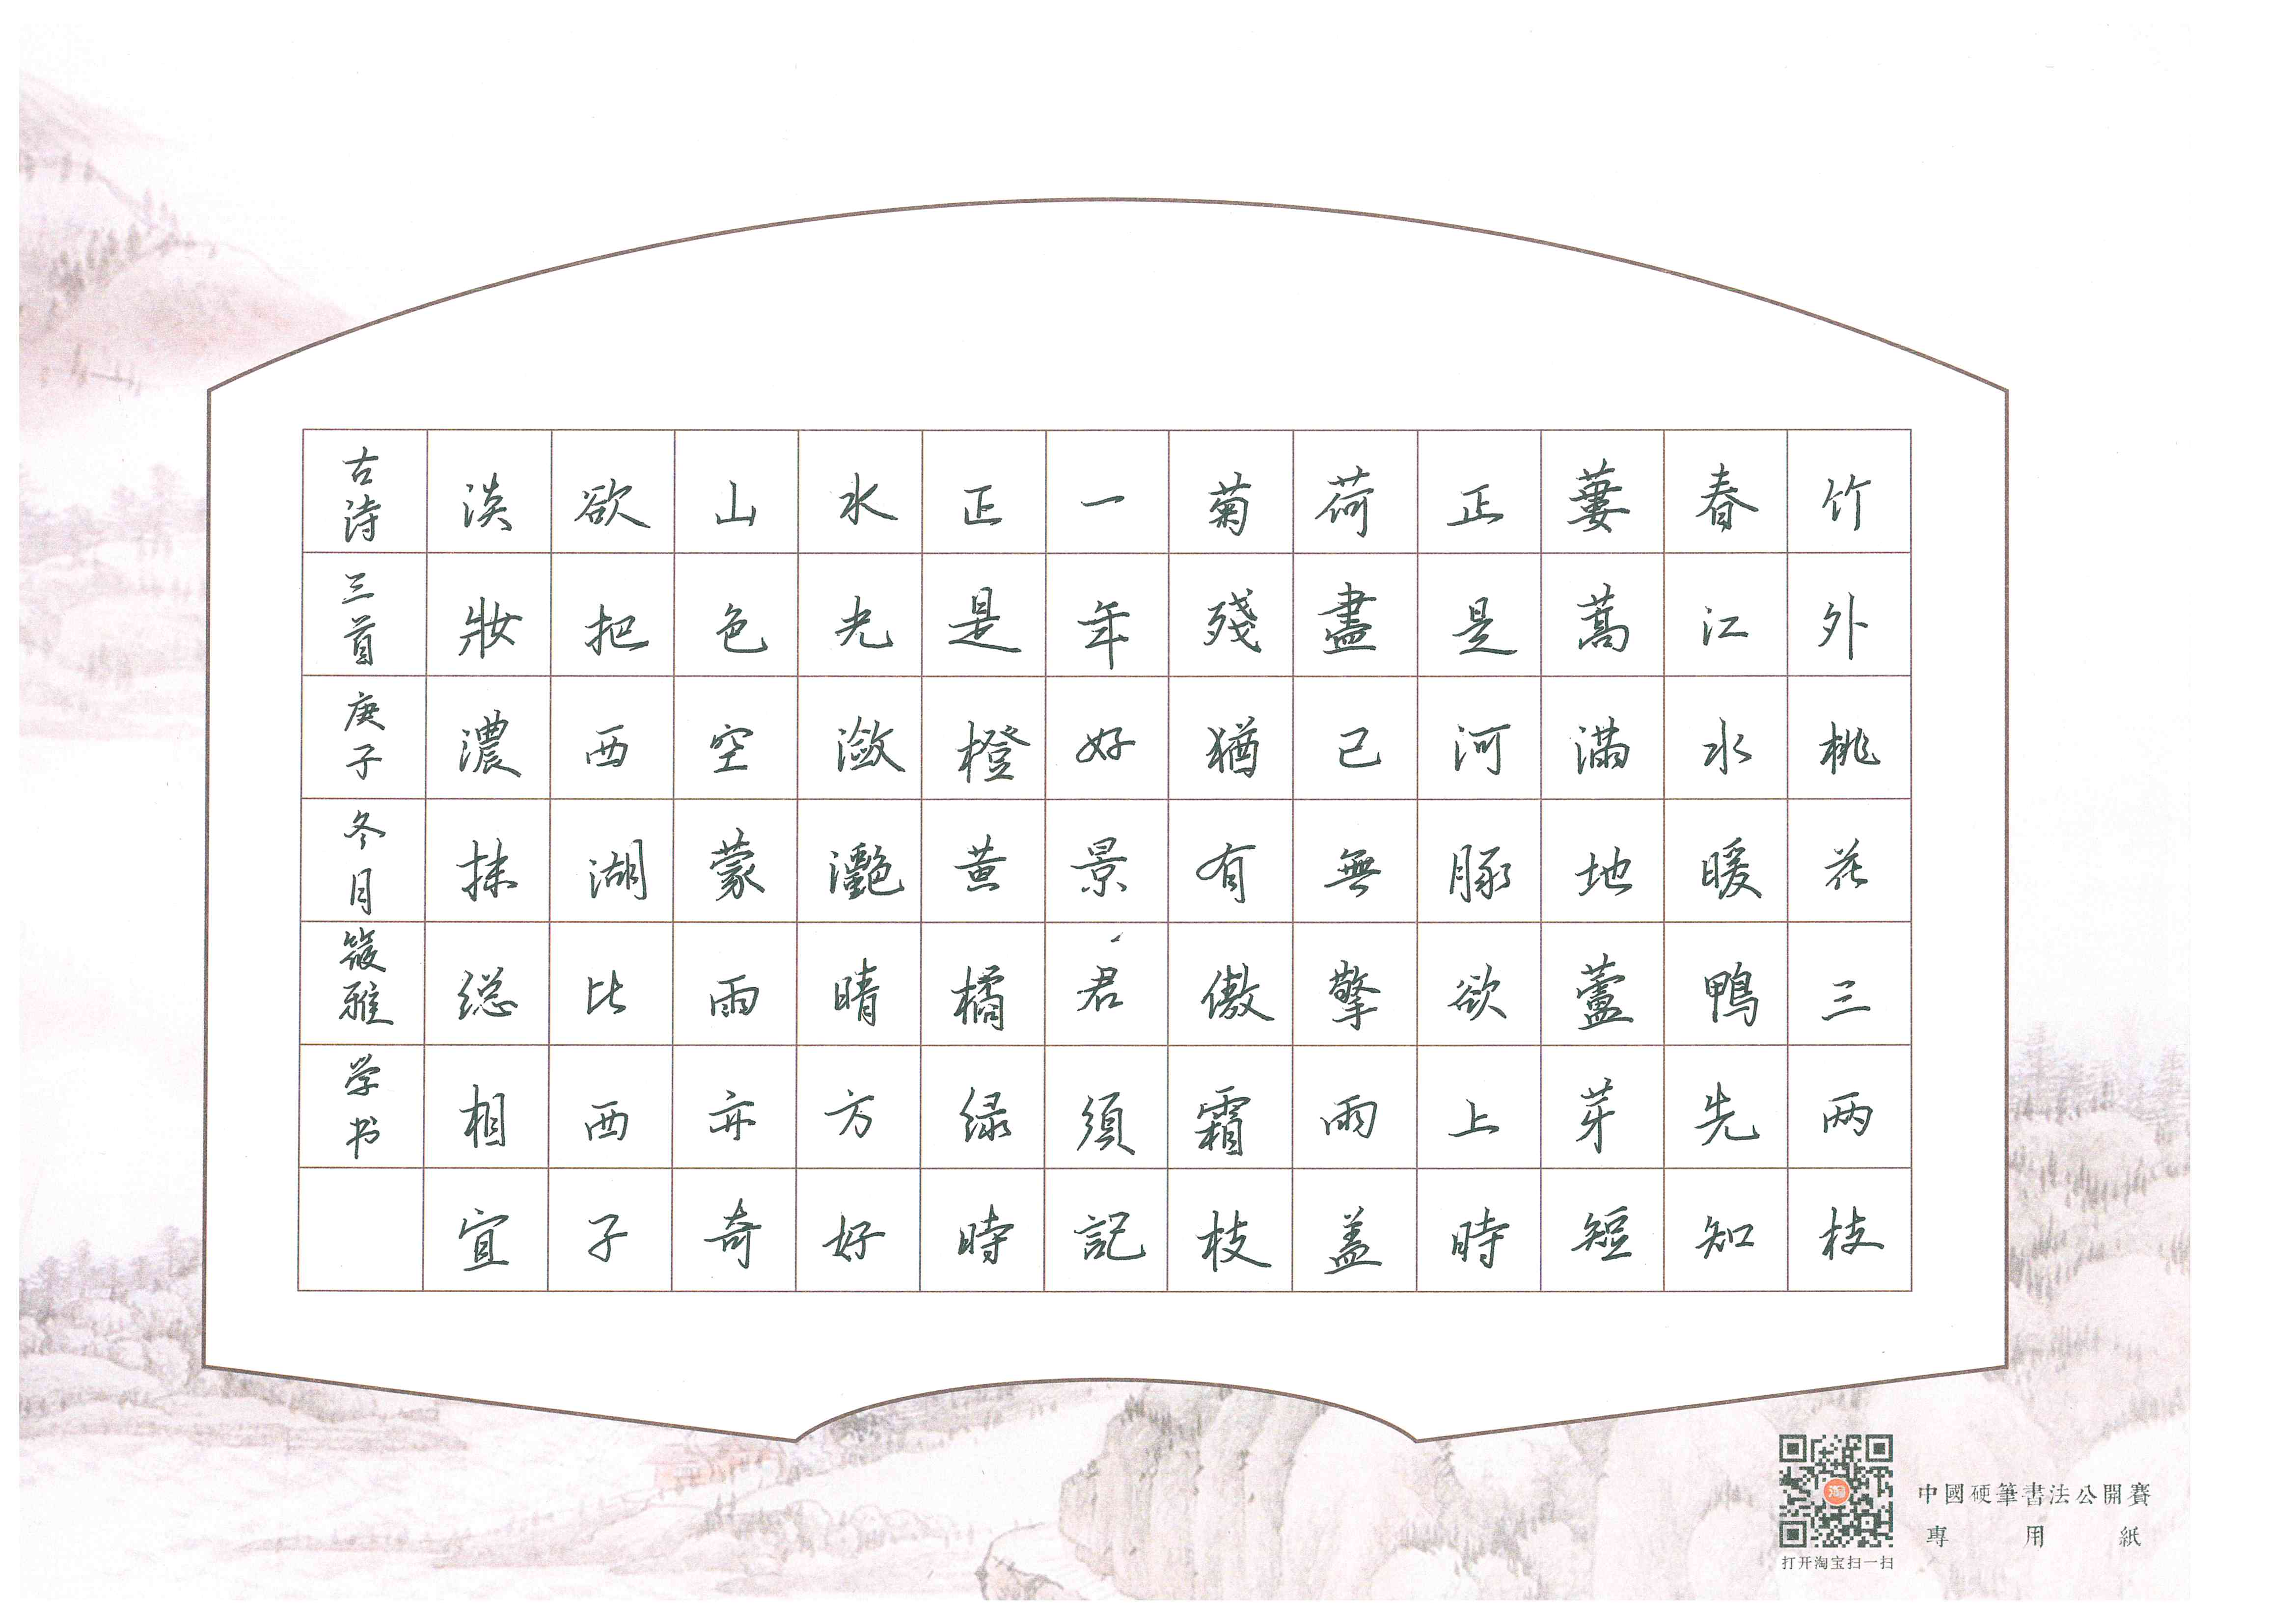 竹外桃花三两枝
春江水暖鴨先知
蔞蒿滿地蘆芽短
正是河豚欲上時
荷盡已無擎雨盖
菊殘猶有傲霜枝
一年好景君須記
正是橙黄橘绿時
水光瀲灧晴方好
山色空蒙雨亦奇
欲把西湖比西子
淡妝濃抹総相宜
古诗三首庚子冬月筱雅学书
中國硬筆書法公開賽
專用紙
打开淘宝扫一扫